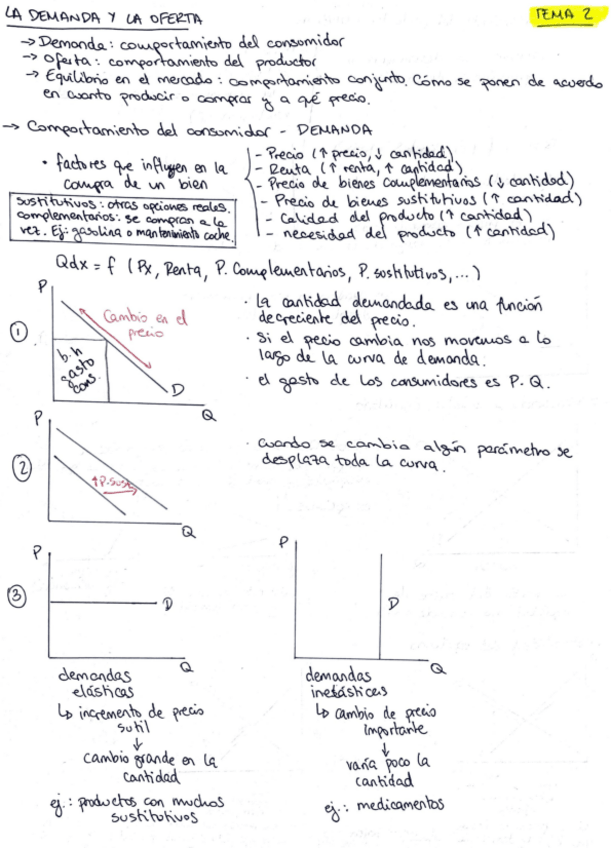 LA DEMANDA Y LA OFERTA
TEMA 2
→ Demanda: comportamiento del consumidor
→ Oferta: comportamiento del productor
→ Equilibrio en el mercado: comportamiento conjunto. Cómo se ponen de acuerdo
en cuanto producir o comprar y a qué precio.
→ Comportamiento del consumidor - DEMANDA
• factores que influyen en la
compra de un bien
- Precio (↑ precio, ↓ cantidad)
- Renta (↑ renta, ↑ cantidad)
- Precio de bienes complementarios (↓ cantidad)
- Precio de bienes sustitutivos (↑ cantidad)
- Calidad del producto (↑ cantidad)
- necesidad del producto (↑ cantidad)
sustitutivos: otras opciones reales.
complementarios: se compran a la
vez. Ej: gasolina o mantenimiento coche.
Qdx = f (Px, Renta, P. Complementarios, P. sustitutivos, ...)
①
P
Cambio en el
precio
b.h
gasto
cons.
D
Q
· La cantidad demandada es una función
decreciente del precio.
· Si el precio cambia nos movemos a lo
largo de la curva de demanda.
· el gasto de los consumidores es P. Q.
②
P
↑P.sust
Q
· cuando se cambia algún parámetro se
desplaza toda la curva.
③
P
D
Q
demandas
elásticas
↳ incremento de precio
sutil
↓
cambio grande en la
cantidad
ej.: productos con muchos
sustitutivos
P
D
Q
demandas
inelásticas
↳ cambio de precio
importante
↓
varía poco la
cantidad
ej.: medicamentos